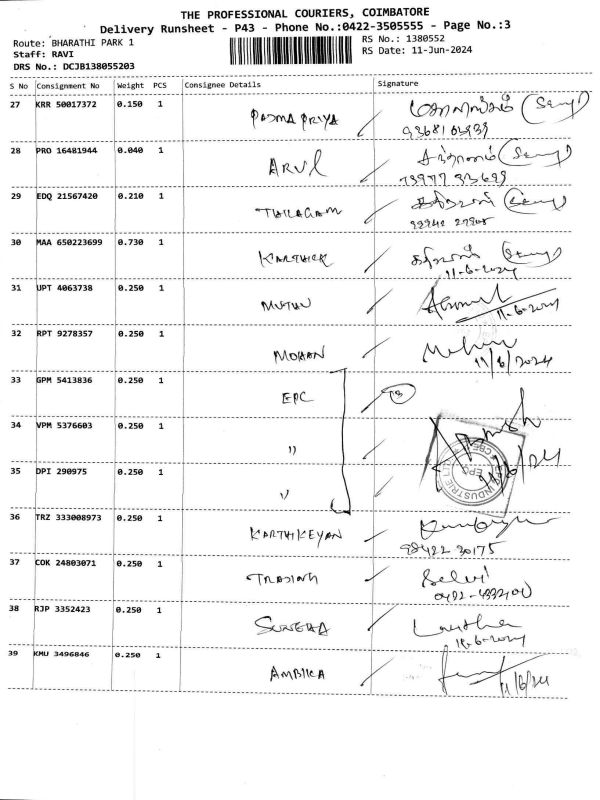 THE PROFESSIONAL COURIERS, COIMBATORE
Delivery Runsheet - P43 - Phone No.:0422-3505555 - Page No.:3
Route: BHARATHI PARK 1
RS No.: 1380552
Staff: RAVI
RS Date: 11-Jun-2024
DRS No.: DCJB138055203
S No Consignment No Weight PCS Consignee Details Signature
27 KRR 50017372 0.150 1 PADMA PRIYA
28 PRO 16481944 0.040 1 ARUL
29 EDQ 21567420 0.210 1 THILAGAM
30 MAA 650223699 0.730 1 KARTHICK
11-6-2024
31 UPT 4063738 0.250 1 MUTHU
11-6-2024
32 RPT 9278357 0.250 1 MOHAN
11/6/2024
33 GPM 5413836 0.250 1 EPC
34 VPM 5376603 0.250 1 "
35 DPI 290975 0.250 1 "
EPC
36 TRZ 333008973 0.250 1 KARTHIKEYAN
98422 30175
37 COK 24803071 0.250 1 TRADING Selvi
38 RJP 3352423 0.250 1
11-6-2024
39 KMU 3496846 0.250 1 AMBIKA
11/6/24